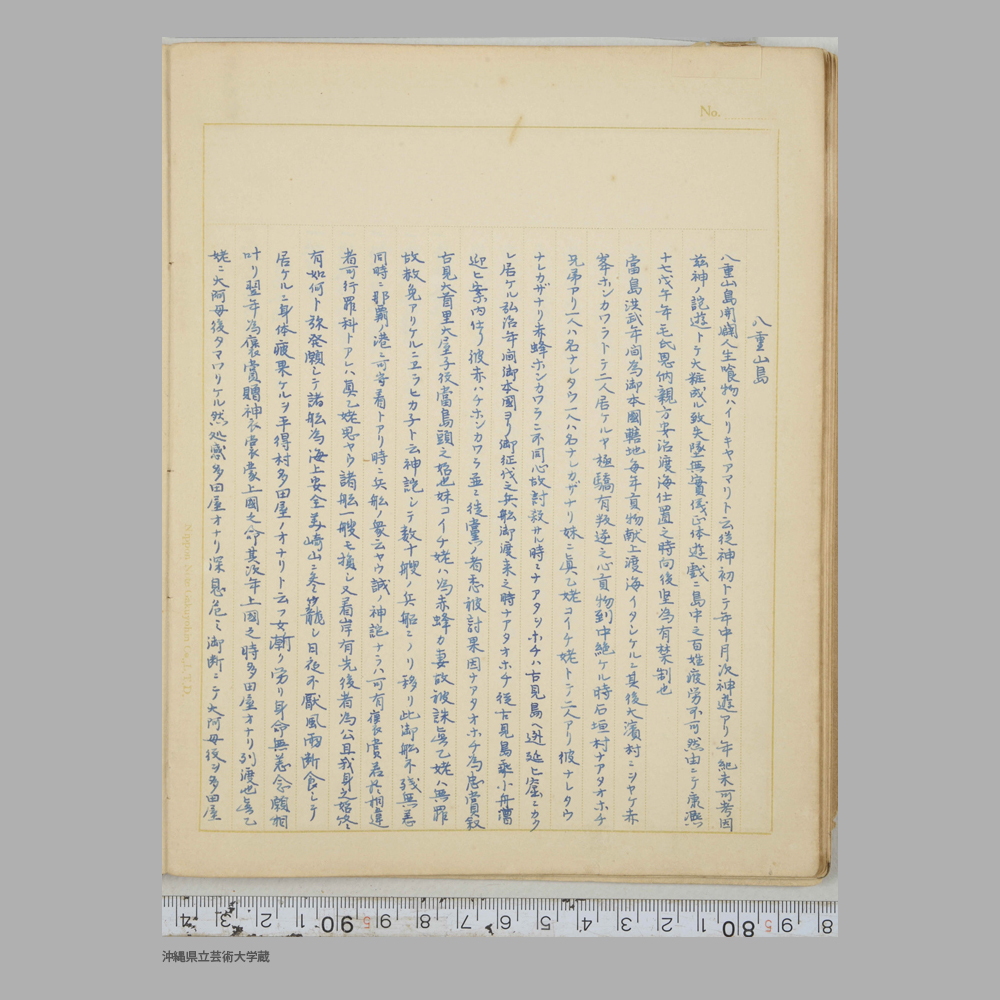 No.
八重山島
八重山島開闢人生喰物ハイリキヤアマリト云従神初トテ年中月次神遊アリ年紀未可考因
茲神ノ詑遊トテ大粧成ル致失墜無實儀正体遊戯ニ島中之百姓疲労不可然由ニテ康熙
十七戊午年毛氏恩納親方安治渡海仕置之時向後堅為有禁制也
當島洪武年間為御本國轄地毎年貢物献上渡海イタシケルニ其後大濱村ニヲヤケ赤
峯ホンカワラトテ二人居ケルヤ極驕有叛逆之心貢物到中絶ケル時石垣村ナアタオホチ
兄弟アリ一人ハ名ナレタウ一人ハ名ナレカザナリ妹ニ眞乙姥コイチ姥トテ二人アリ彼ナレタウ
ナレカザナリ赤蜂ホンカワラニ不同心故討殺サル時ニナアタツホチハ古見島ヘ迯延ヒ窟ニカク
レ居ケル弘治年間御本國ヨリ御征伐之兵舩御渡来之時ナアタオホチ従古見島乗小舟漕
迎ヒ案内仕リ彼赤ハチホンカワラ並ニ徒黨ノ者悉被討果因ナアタオホチ為忠賞叙
古見大首里大屋子後當島頭之始也妹コイチ姥ハ為赤蜂カ妻故被誅眞乙姥ハ無罪
故赦免アリケルニヲラヒカ子ト云神詑シテ数十艘ノ兵船ニノリ移リ此御舩不残無恙
同時ニ那覇ノ港ニ可寄着トアリ時ニ兵舩ノ衆云ヤウ誠ノ神詑ナラハ可有褒賞若於相違
者可行罪科トアレハ眞乙姥思ヤウ諸舩一艘モ損シ又着岸有先後者為公且我身之始終
有如何ト詠発願シテ諸舩為海上安全美崎山ニ参籠シ日夜不厭風雨断食シテ
居ケルニ身体疲果ケルヲ平得村多田屋ノオナリト云フ女漸ク労リ身命無恙念願相
叶リ翌年為褒賞贈神衣裳蒙上國之命其次年上國之時多田屋オナリ列渡也眞乙
姥ニ大阿母後タマワリケル然処感多田屋オナリ深恩危ミ御断ニテ大阿母役ヲ多田屋
Nippon Note Gakuyohin Co., LTD.
4 3 2 1 90 5 8 7 6 5 4 3 2 1 80 5 9 8
沖縄県立芸術大学蔵